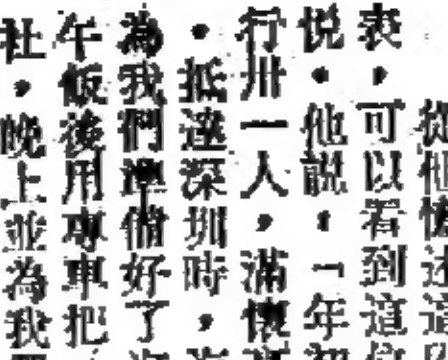 從他
表，可以看到這
悅。他說：「年
行卅一人，滿懷
。抵達深圳時，
為我們準備好了
午飯後用專車把
社，晚上並為我